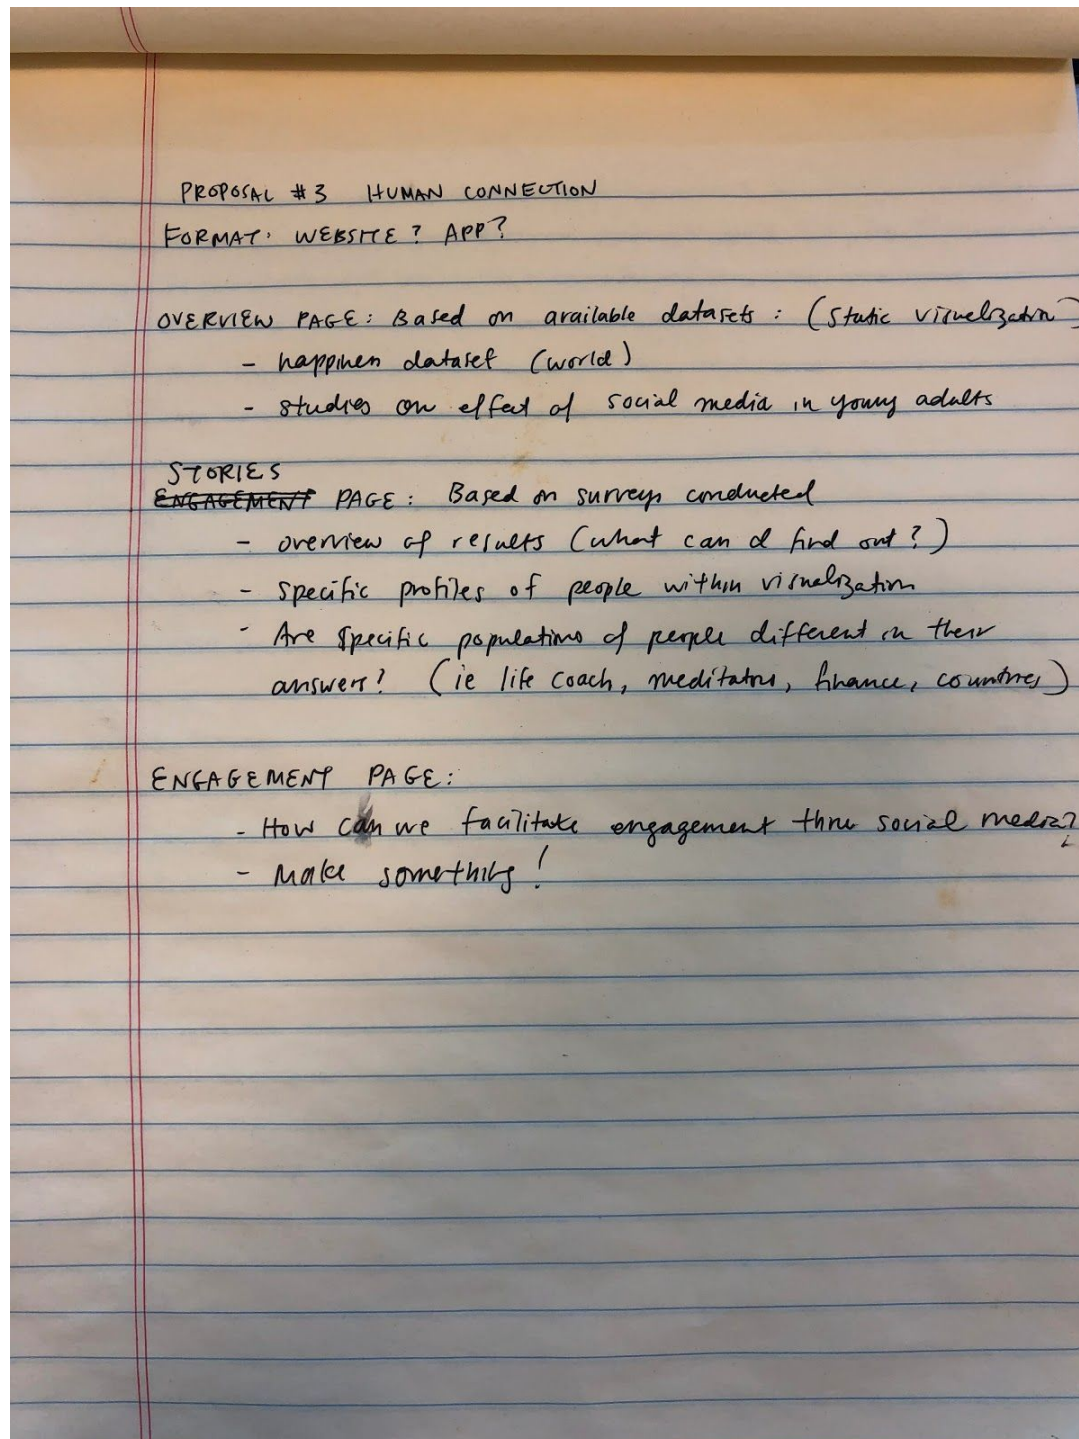 PROPOSAL #3 HUMAN CONNECTION
FORMAT: WEBSITE? APP?
OVERVIEW PAGE: Based on available datasets: (static visualization)
- happiness dataset (world)
- studies on effect of social media in young adults
STORIES
ENGAGEMENT PAGE: Based on surveys conducted
- overview of results (what can I find out?)
- specific profiles of people within visualization
- Are specific populations of people different in their
answers? (ie life coach, meditators, finance, countries)
ENGAGEMENT PAGE:
- How can we facilitate engagement thru social media?
- Make something!